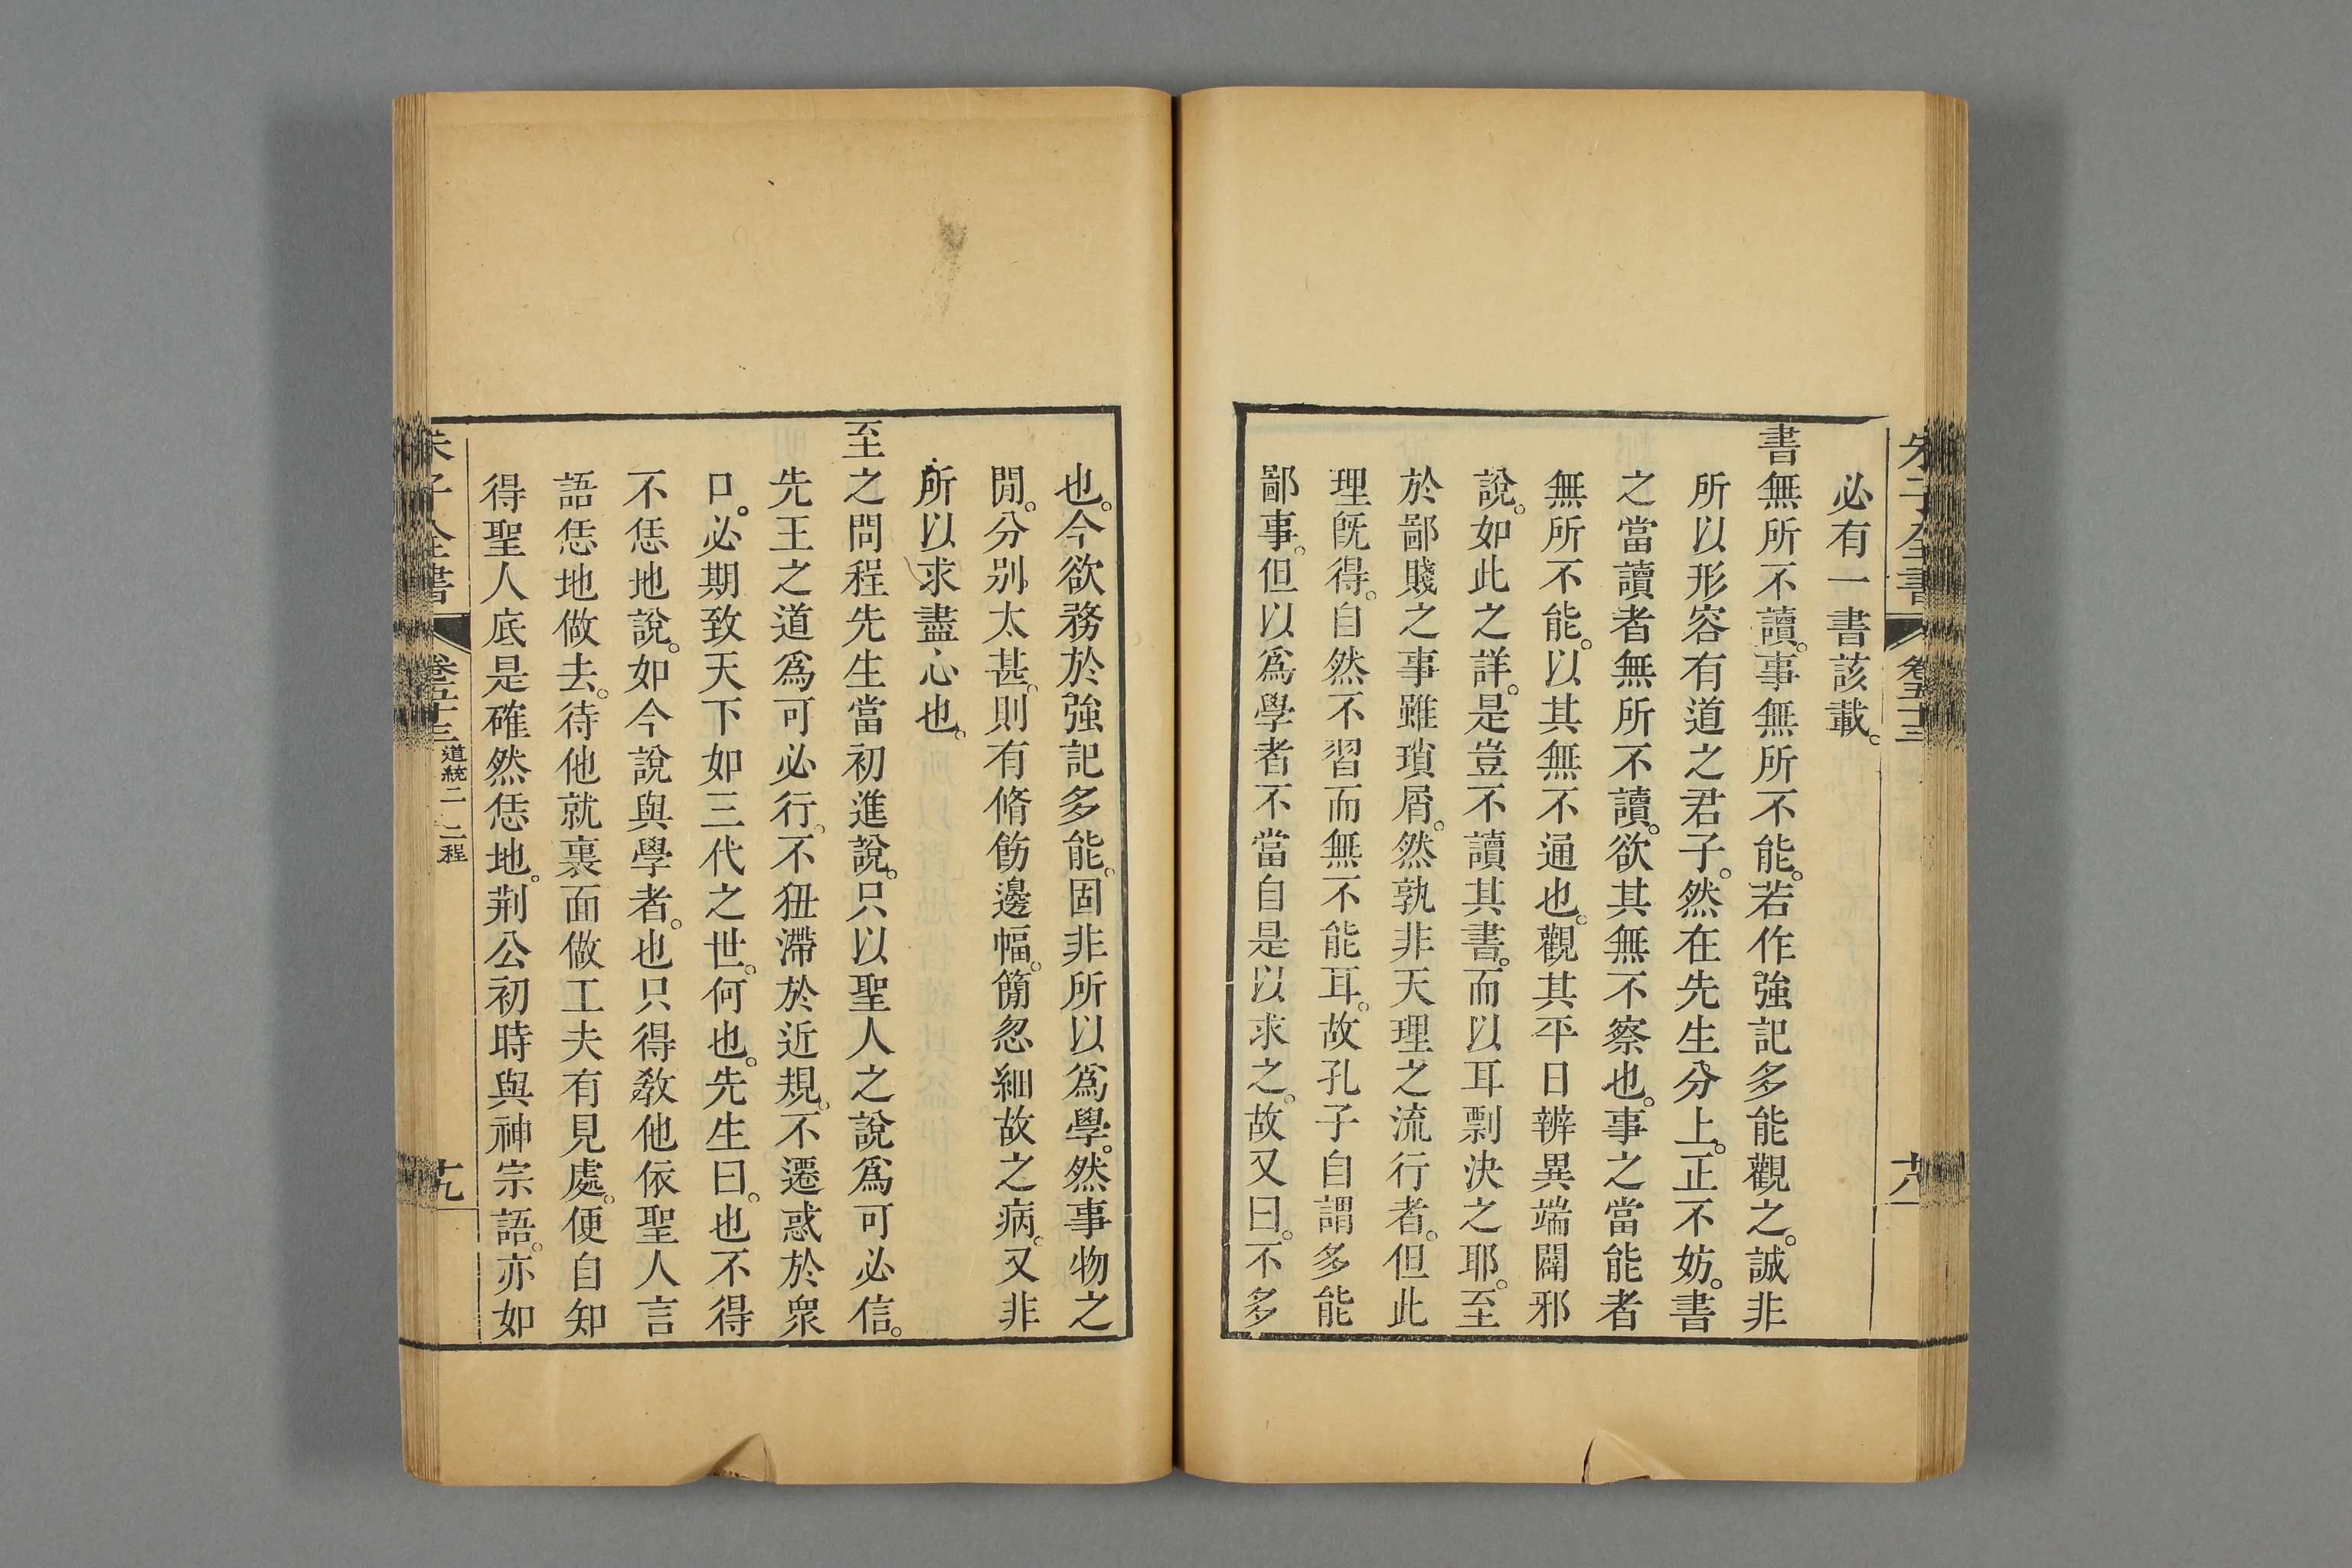 朱子全書 卷五十三 十八
必有一書該載。
書無所不讀。事無所不能。若作強記多能觀之。誠非
所以形容有道之君子。然在先生分上。正不妨。書
之當讀者無所不讀。欲其無不察也。事之當能者
無所不能。以其無不通也。觀其平日辨異端闢邪
說。如此之詳。是豈不讀其書。而以耳剽決之耶。至
於鄙賤之事雖瑣屑。然孰非天理之流行者。但此
理旣得。自然不習而無不能耳。故孔子自謂多能
鄙事。但以爲學者不當自是以求之。故又曰。不多
也。今欲務於強記多能。固非所以爲學。然事物之
閒。分別太甚。則有脩飭邊幅。簡忽細故之病。又非
所以求盡心也。
至之問程先生當初進說。只以聖人之說爲可必信。
先王之道爲可必行。不狃滯於近規。不遷惑於衆
口。必期致天下如三代之世。何也。先生曰。也不得
不恁地說。如今說與學者。也只得敎他依聖人言
語恁地做去。待他就裏面做工夫有見處。便自知
得聖人底是確然恁地。荆公初時與神宗語。亦如
朱子全書 卷五十三 道統二 二程 十九